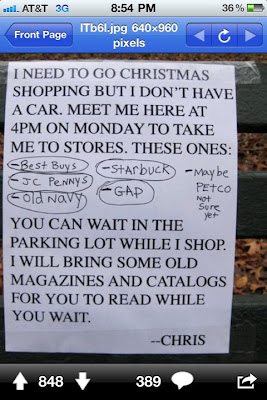 AT&T 3G 8:54 PM 36%
Front Page
lTb6l.jpg 640×960
pixels
I NEED TO GO CHRISTMAS
SHOPPING BUT I DON'T HAVE
A CAR. MEET ME HERE AT
4PM ON MONDAY TO TAKE
ME TO STORES. THESE ONES:
-BEST BUYS
-STARBUCK
-MAYBE
PETCO
NOT
SURE
YET
-JC PENNYS
-GAP
-OLD NAVY
YOU CAN WAIT IN THE
PARKING LOT WHILE I SHOP.
I WILL BRING SOME OLD
MAGAZINES AND CATALOGS
FOR YOU TO READ WHILE
YOU WAIT.
--CHRIS
848 389